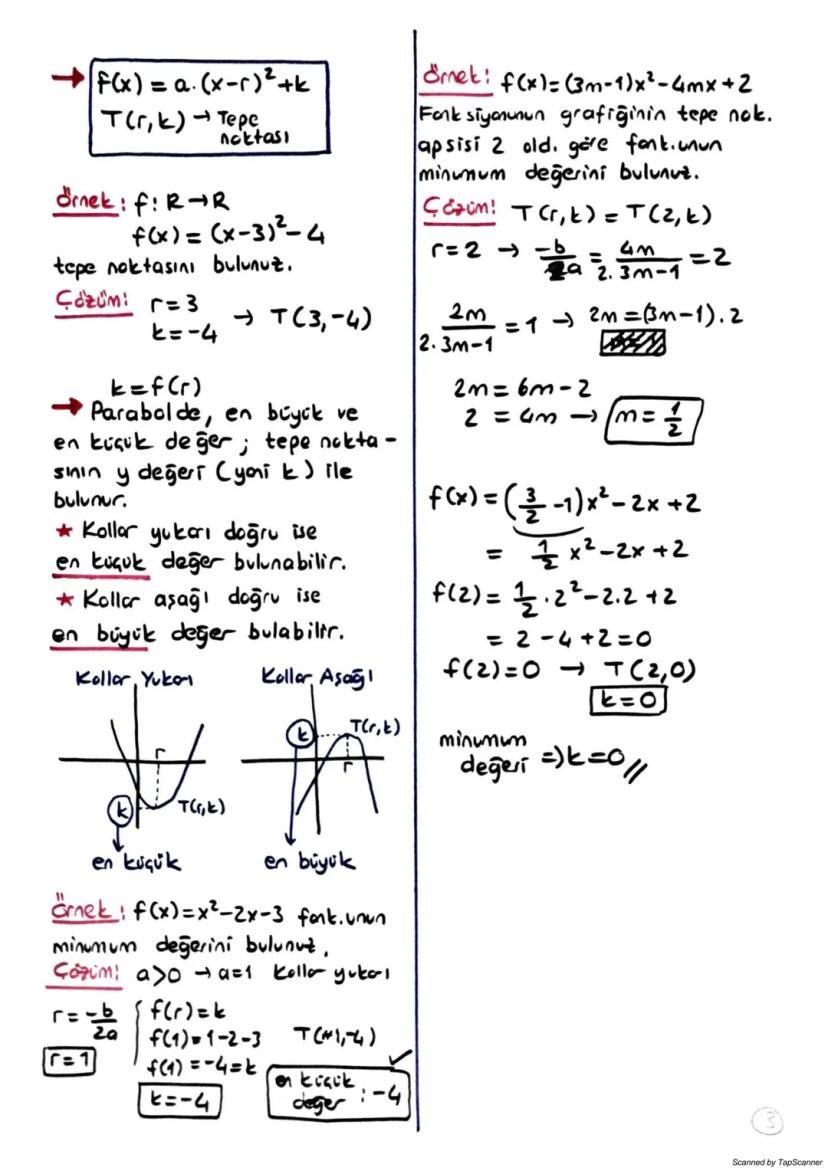 → f(x) = a.(x-r)²+k
T(r,k) → Tepe
noktası
Örnek: f: R→R
f(x) = (x-3)²-4
tepe noktasını bulunuz.
Çözüm: r=3
k=-4 → T(3,-4)
k=f(r)
→ Parabolde, en büyük ve
en küçük değer; tepe nokta-
sının y değeri (yani k) ile
bulunur.
★ Kollar yukarı doğru ise
en küçük değer bulunabilir.
★ Kollar aşağı doğru ise
en büyük değer bulabilir.
Kollar Yukarı
r
k
T(r,k)
en küçük
Kollar Aşağı
k
T(r,k)
r
en büyük
Örnek: f(x)=x²-2x-3 fonk.unun
minumum değerini bulunuz.
Çözüm: a>0 → a=1 kollar yukarı
r=-b/2a
r=1
f(r)=k
f(1)=1-2-3
f(1)=-4=k
k=-4
T(1,-4)
en küçük
değer : -4
Örnek: f(x)=(3m-1)x²-4mx+2
Fonksiyonunun grafiğinin tepe nok.
apsisi 2 old. göre fonk.unun
minumum değerini bulunuz.
Çözüm: T(r,k) = T(2,k)
r=2 → -b/2a = 4m/2.3m-1 = 2
2m/2.3m-1 = 1 → 2m=(3m-1).2
2m = 6m-2
2 = 4m → m=1/2
f(x)=(3/2-1)x²-2x+2
= 1/2 x²-2x+2
f(2)= 1/2.2²-2.2+2
= 2-4+2=0
f(2)=0 → T(2,0)
k=0
minumum
değeri ⇒ k=0//
3
Scanned by TapScanner